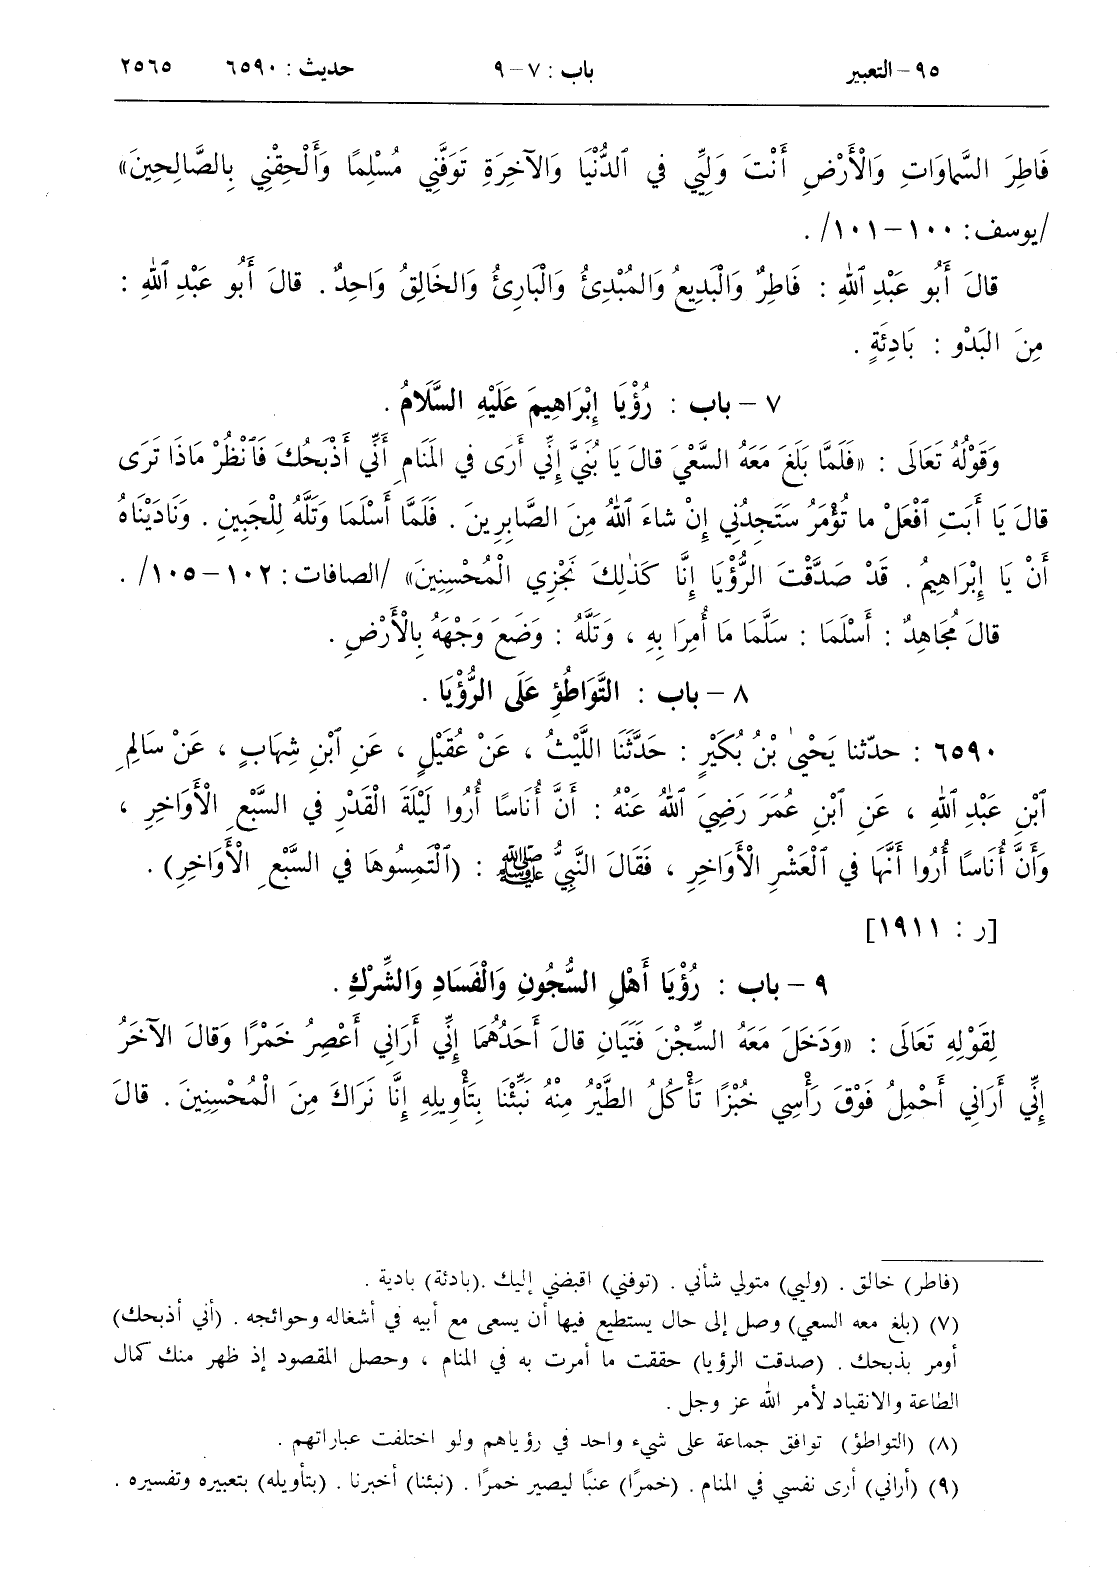 ٩٥ – التعبير باب : ٧ – ٩ حديث : ٦٥٩٠ ٢٥٦٥
فَاطِرَ السَّمَاوَاتِ وَالْأَرْضِ أَنْتَ وَلِيِّي في الدُّنْيَا وَالآخِرَةِ تَوَفَّنِي مُسْلِمًا وَأَلْحِقْنِي بِالصَّالِحِينَ»
/يوسف: ١٠٠ – ١٠١/ .
قالَ أَبُو عَبْدِ اللهِ : فَاطِرٌ وَالْبَدِيعُ وَالمُبْدِئُ وَالْبَارِئُ وَالخَالِقُ وَاحِدٌ . قالَ أَبُو عَبْدِ اللهِ :
مِنَ البَدْوِ : بَادِئَةٍ .
٧ – باب : رُؤْيَا إِبْرَاهِيمَ عَلَيْهِ السَّلَامُ .
وَقَوْلُهُ تَعَالَى : «فَلَمَّا بَلَغَ مَعَهُ السَّعْيَ قالَ يَا بُنَيَّ إِنِّي أَرَى في المَنَامِ أَنِّي أَذْبَحُكَ فَانْظُرْ مَاذَا تَرَى
قالَ يَا أَبَتِ افْعَلْ ما تُؤْمَرُ سَتَجِدُنِي إِنْ شاءَ اللهُ مِنَ الصَّابِرِينَ . فَلَمَّا أَسْلَمَا وَتَلَّهُ لِلْجَبِينِ . وَنَادَيْنَاهُ
أَنْ يَا إِبْرَاهِيمُ . قَدْ صَدَّقْتَ الرُّؤْيَا إِنَّا كَذٰلِكَ نَجْزِي الْمُحْسِنِينَ» /الصافات: ١٠٢ – ١٠٥/ .
قالَ مُجَاهِدٌ : أَسْلَمَا : سَلَّمَا مَا أُمِرَا بِهِ ، وَتَلَّهُ : وَضَعَ وَجْهَهُ بِالْأَرْضِ .
٨ – باب : التَّوَاطُؤِ عَلَى الرُّؤْيَا .
٦٥٩٠ : حدّثنا يَحْيىٰ بْنُ بُكَيْرٍ : حَدَّثَنَا اللَّيْثُ ، عَنْ عُقَيْلٍ ، عَنِ ابْنِ شِهَابٍ ، عَنْ سَالِمِ
ابْنِ عَبْدِ اللهِ ، عَنِ ابْنِ عُمَرَ رَضِيَ اللهُ عَنْهُ : أَنَّ أُنَاسًا أُرُوا لَيْلَةَ الْقَدْرِ في السَّبْعِ الْأَوَاخِرِ ،
وَأَنَّ أُنَاسًا أُرُوا أَنَّهَا في الْعَشْرِ الْأَوَاخِرِ ، فَقَالَ النَّبِيُّ ﷺ : (الْتَمِسُوهَا في السَّبْعِ الْأَوَاخِرِ) .
[ر : ١٩١١]
٩ – باب : رُؤْيَا أَهْلِ السُّجُونِ وَالْفَسَادِ وَالشِّرْكِ .
لِقَوْلِهِ تَعَالَى : «وَدَخَلَ مَعَهُ السِّجْنَ فَتَيَانِ قالَ أَحَدُهُمَا إِنِّي أَرَانِي أَعْصِرُ خَمْرًا وَقالَ الآخَرُ
إِنِّي أَرَانِي أَحْمِلُ فَوْقَ رَأْسِي خُبْزًا تَأْكُلُ الطَّيْرُ مِنْهُ نَبِّئْنَا بِتَأْوِيلِهِ إِنَّا نَرَاكَ مِنَ الْمُحْسِنِينَ . قالَ
(فاطر) خالق . (وليي) متولي شأني . (توفني) اقبضني إليك .(بادئة) بادية .
(٧) (بلغ معه السعي) وصل إلى حال يستطيع فيها أن يسعى مع أبيه في أشغاله وحوائجه . (أني أذبحك)
أومر بذبحك . (صدقت الرؤيا) حققت ما أمرت به في المنام ، وحصل المقصود إذ ظهر منك كمال
الطاعة والانقياد لأمر الله عز وجل .
(٨) (التواطؤ) توافق جماعة على شيء واحد في رؤياهم ولو اختلفت عباراتهم .
(٩) (أراني) أرى نفسي في المنام . (خمرًا) عنبًا ليصير خمرًا . (نبئنا) أخبرنا . (بتأويله) بتعبيره وتفسيره .